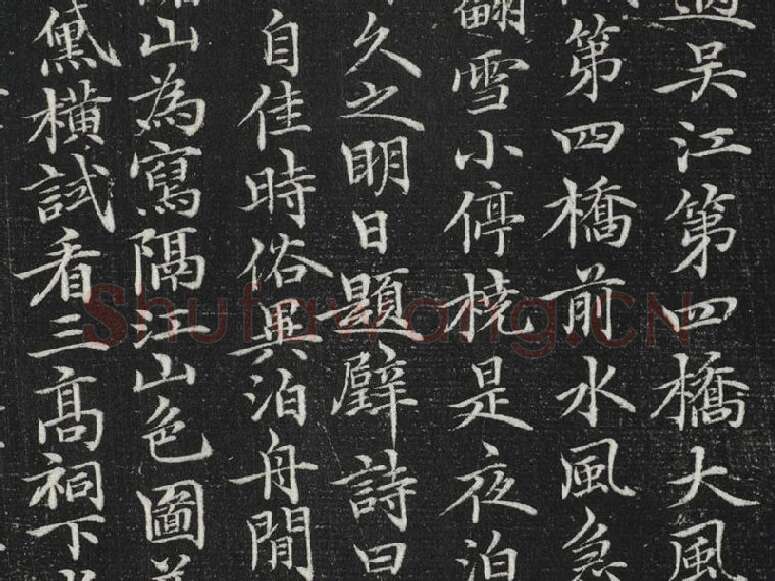 過吳江第四橋大風
第四橋前水風急
翻雪小停橈是夜泊
久之明日題壁詩曰
自佳時俗異泊舟閒
山為寫隔江山色圖
黛橫試看三高祠下
Shufawang.CN